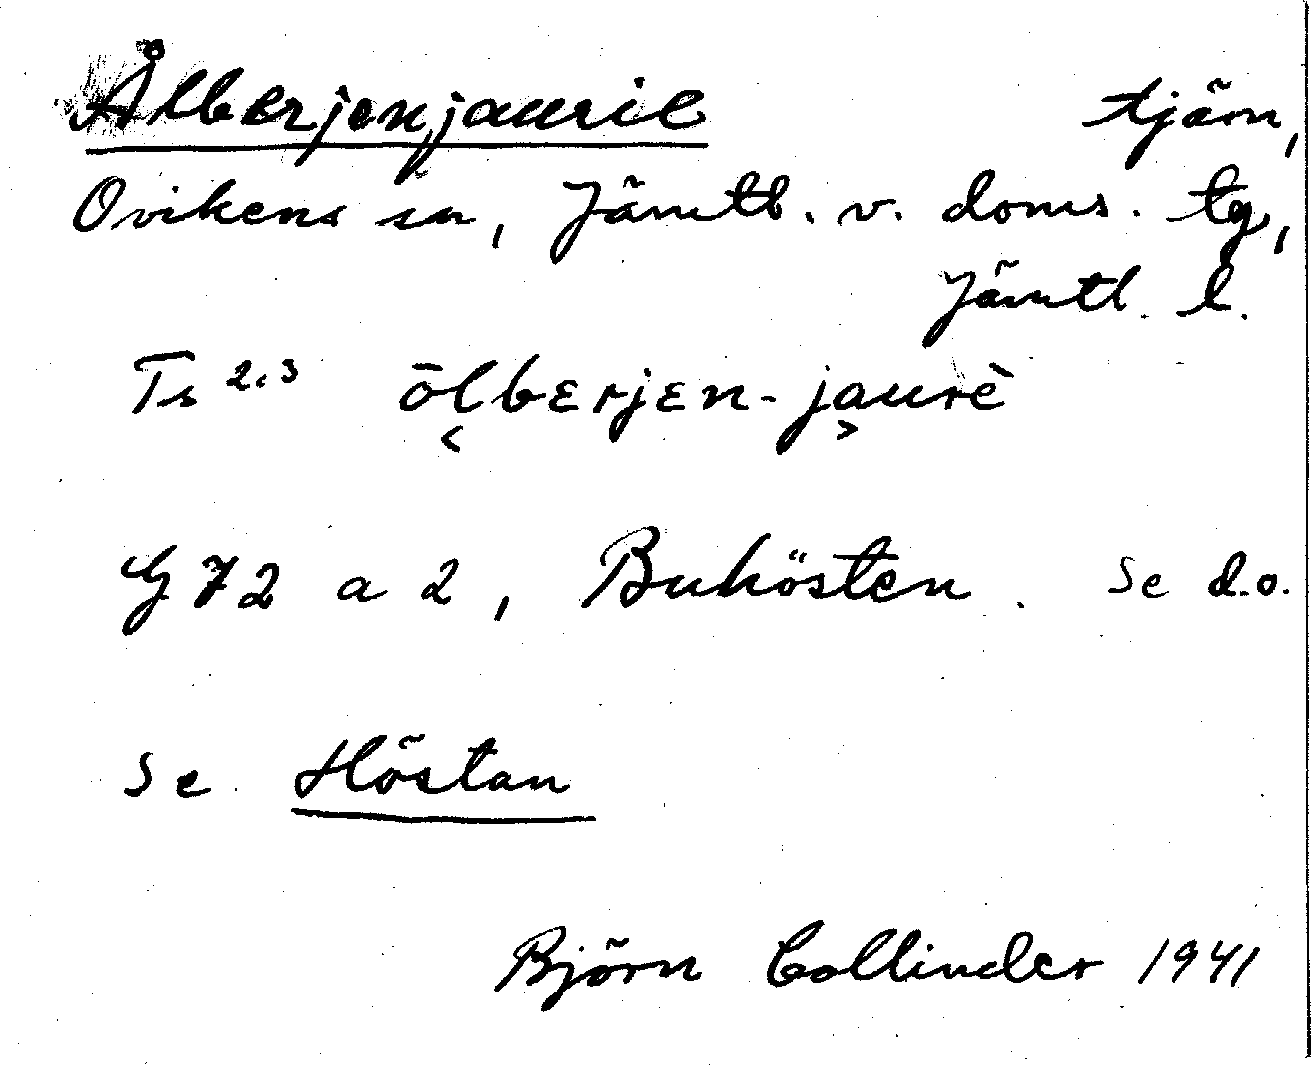 Ålberjenjaurie tjärn,
Ovikens sn, Jämtl. v. doms. tg,
Jämtl. l.
Ts 2.3 ōlbɛrjɛn-jaurè
G 72 a 2, Buhösten. Se d.o.
Se Höstan
Björn Collinder 1941